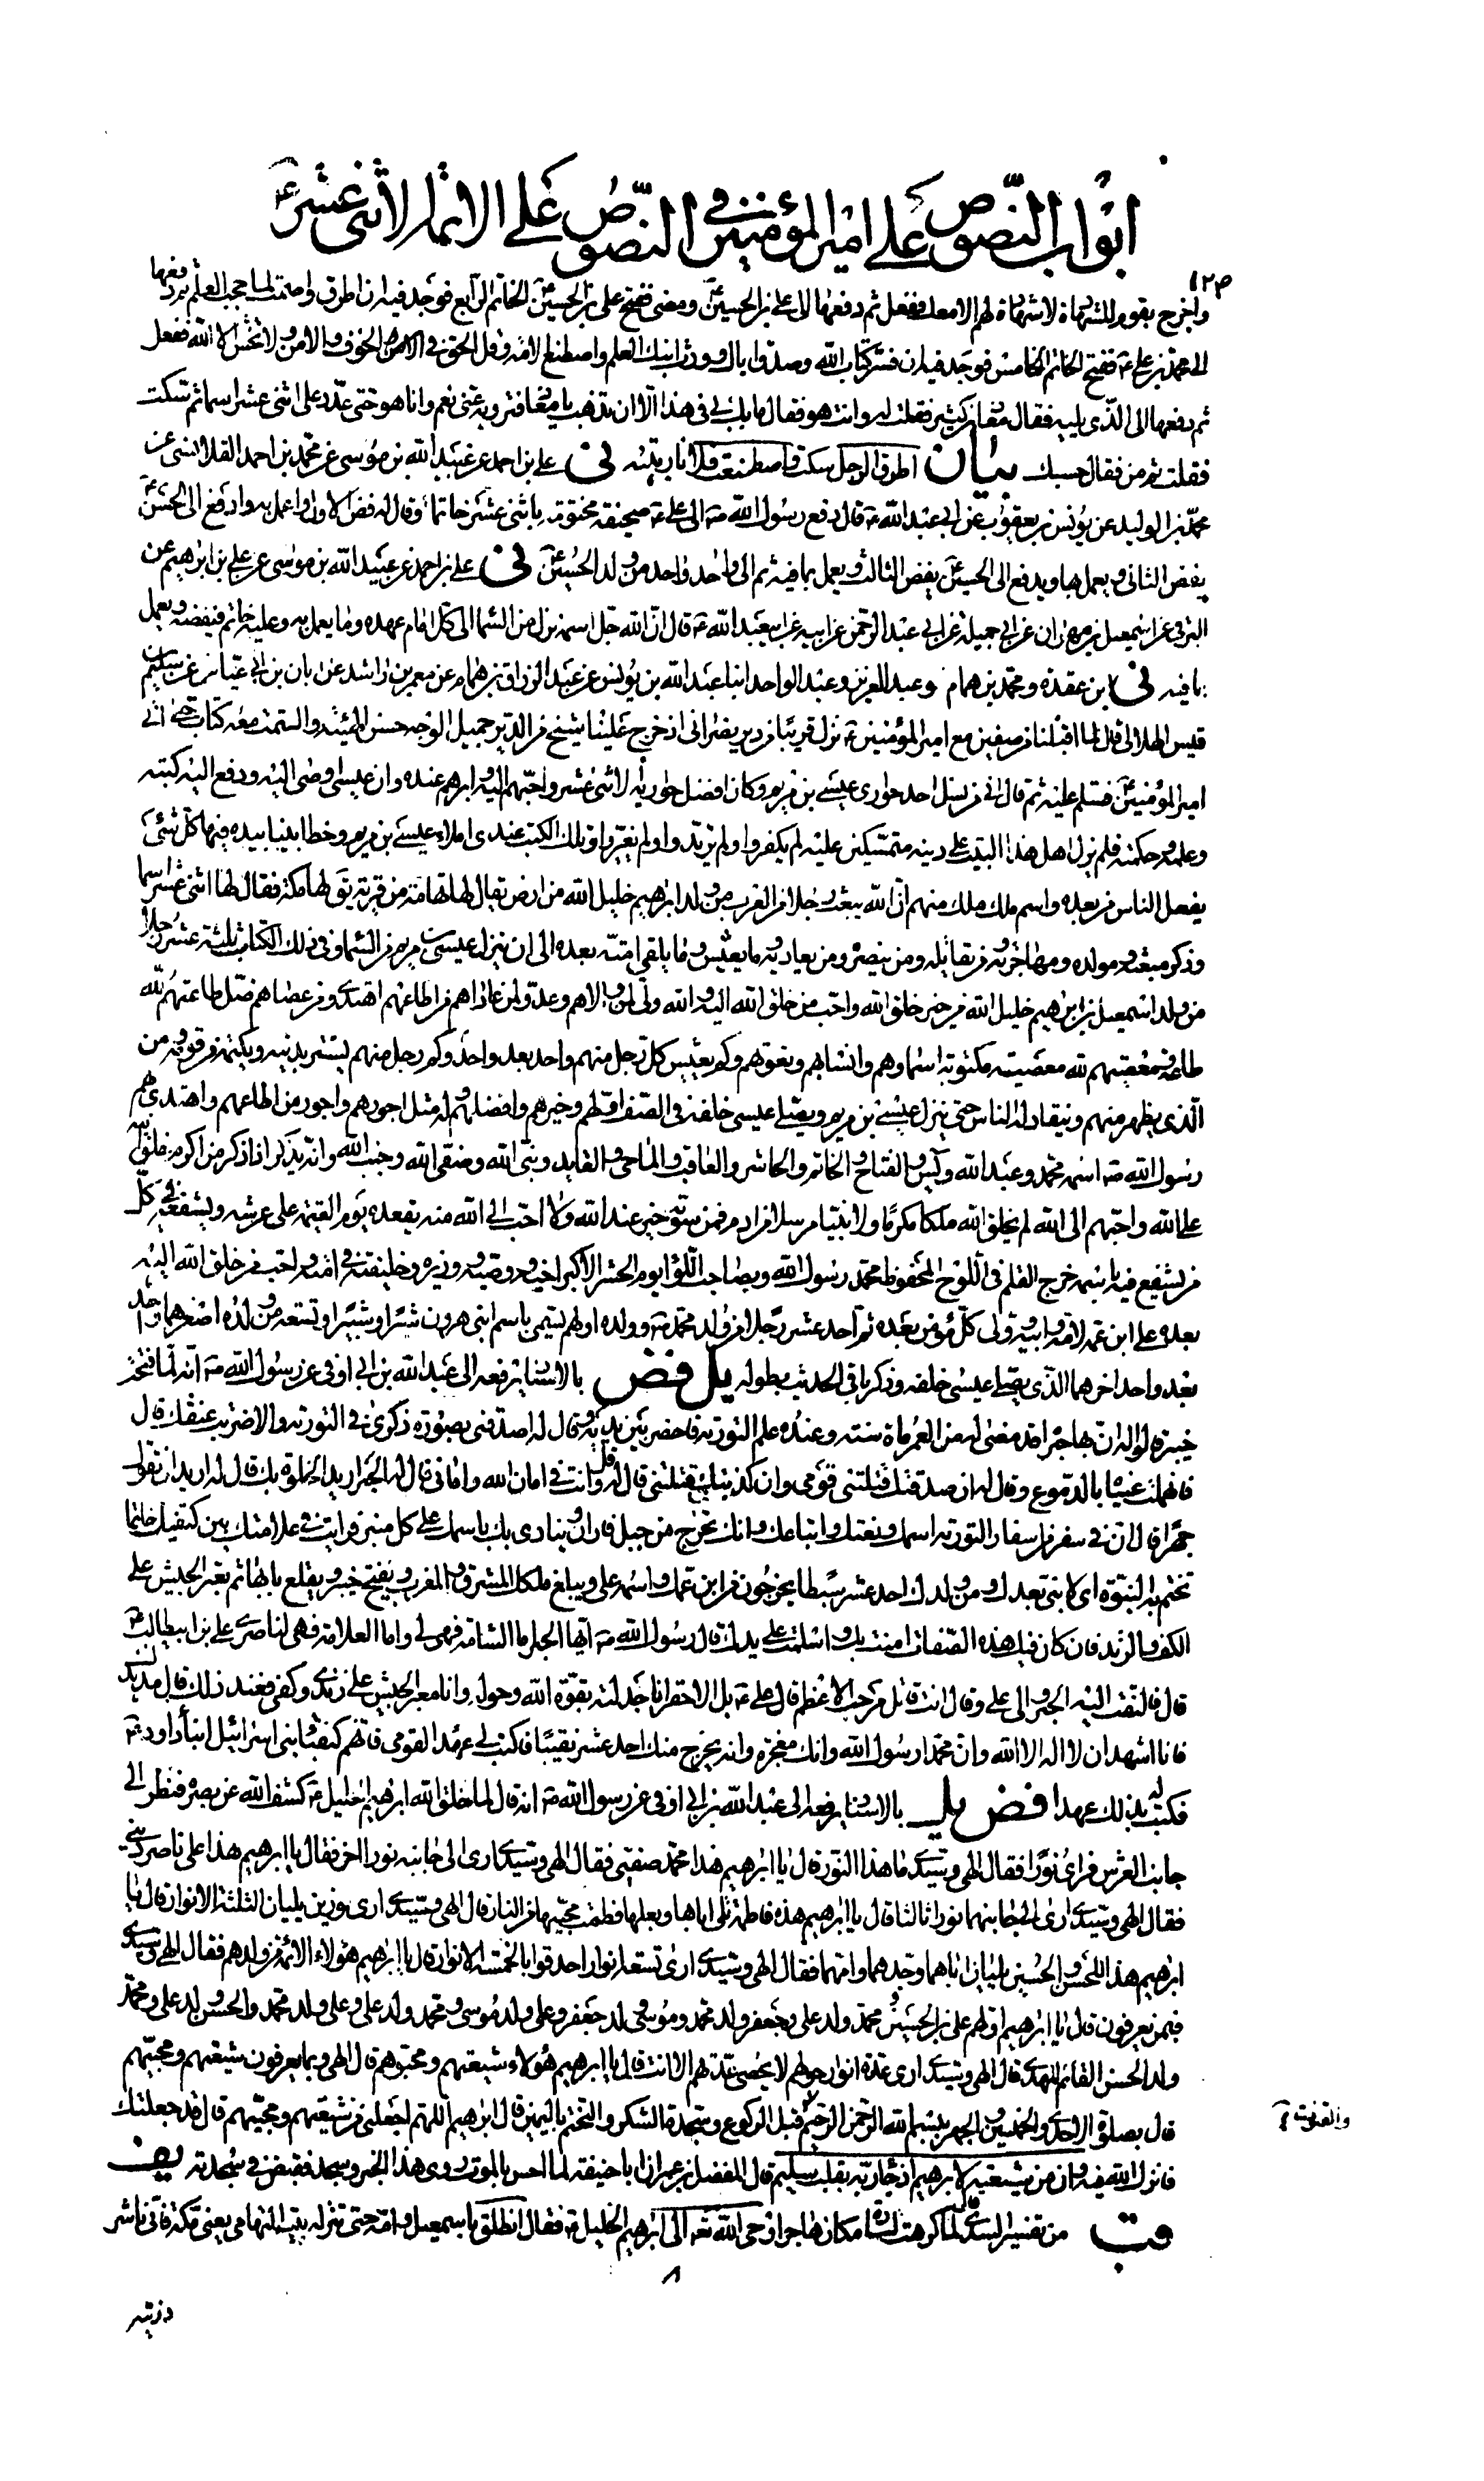 ابواب النصوص على امير المؤمنين في النصوص على الائمة الاثنى عشر ع
١٢٣
واخرج بقوم للشهادة لا شهادة لهم الا معك ففعل ثم دفعها الى على بن الحسين ع ومضى ففتح على بن الحسين ع الخاتم الرابع فوجد فيه ان اطرق واصمت لما حجب العلم ثم دفعها
الى محمد بن على ع ففتح الخاتم الخامس فوجد فيه ان فسر كتاب الله وصدق اباك وورث ابنك العلم واصطنع الامة وقل الحق في الامن والخوف ولا تخش الا الله ففعل
ثم دفعها الى الذى يليه فقال معاذ بن كثير فقلت له وانت هو فقال ما بك في هذا الا ان تذهب يا معاذ فترويه عنى نعم انا هو حتى عدد على اثنى عشر اسما ثم سكت
فقلت ثم من فقال حسبك بيان اطرق الرجل سكت واصطنعت فلانا ربيته نى على بن احمد عن عبيد الله بن موسى عن محمد بن احمد القلانسى عن
محمد بن الوليد عن يونس بن يعقوب عن ابى عبد الله ع قال دفع رسول الله ص الى على ع صحيفة مختومة باثنى عشر خاتما وقال له فض الاول واعمل به وادفع الى الحسن ع
يفض الثانى ويعمل بها ويدفع الى الحسين ع يفض الثالث ويعمل بما فيه ثم الى واحد واحد من ولد الحسين ع نى على بن احمد عن عبيد الله بن موسى عن على بن ابراهيم عن
البرقى عن اسمعيل بن مهران عن ابى جميلة عن ابى عبد الرحمن عن ابيعبد الله ع قال ان الله جل اسمه نزل من السماء الى كل امام عهده وما يعمل به وعليه خاتم فيفضه ويعمل
بما فيه نى ابن عقدة ومحمد بن همام وعبد العزيز وعبد الواحد ابنا عبد الله بن يونس عن عبد الرزاق بن همام عن معمر بن راشد عن ابان بن ابى عياش عن سليم بن
قيس الهلالى قال لما اقبلنا من صفين مع امير المؤمنين ع نزل قريبا من دير نصرانى اذ خرج علينا شيخ من الدير جميل الوجه حسن الهيئة والسمت معه كتاب حتى اتى
امير المؤمنين ع فسلم عليه ثم قال انى من نسل احد حوارى عيسى بن مريم وكان افضل حواريه الاثنى عشر واحبهم اليه وابرهم عنده وان عيسى اوصى اليه ودفع اليه كتبه
وعلمه وحكمته فلم يزل اهل هذا البيت على دينه متمسكين عليه لم يكفروا ولم يرتدوا ولم يغيروا وتلك الكتب عندى املاء عيسى بن مريم وخط ابينا بيده فيها كل شىء
يفعل الناس من بعده واسم ملك ملك منهم ان الله يبعث رجلا من العرب من ولد ابرهيم خليل الله من ارض يقال لها تهامة من قرية يقال لها مكة فقال لها اثنى عشر اسما
وذكر مبعثه ومولده ومهاجرته ومن يقاتله ومن ينصره ومن يعاديه وما يعيش وما يلقى امته بعده الى ان ينزل عيسى بن مريم من السماء وفى ذلك الكتاب ثلثة عشر رجلا
من ولد اسمعيل بن ابرهيم خليل الله من خير خلق الله واحب من خلق الله اليه والله ولى لمن والاهم وعدو لمن عاداهم من اطاعهم اهتدى ومن عصاهم ضل طاعتهم لله
طاعة ومعصيتهم لله معصية مكتوبة اسماؤهم وانسابهم ونعوتهم وكم يعيش كل رجل منهم واحد بعد واحد وكم رجل منهم يستتر بدينه ويكتمه من قومه ومن
الذى يظهر منهم وينقاد له الناس حتى ينزل عيسى بن مريم ويصلى عيسى خلفه في الصف اولهم وخيرهم وافضلهم له مثل اجورهم واجور من اطاعهم واهتدى بهم
رسول الله ص اسمه محمد وعبد الله ويس والفتاح والخاتم والحاشر والعاقب والماحى والقايد ونبى الله وصفى الله وجنب الله وانه يذكر اذا ذكر من اكرم خلق الله
على الله واحبهم الى الله لم يخلق الله ملكا مكرما ولا نبيا مرسلا من ادم فمن سواه خير عند الله ولا احب الى الله منه يقعده يوم القيمة على عرشه ويشفعه في كل
من يشفع فيه باسمه خرج القلم في اللوح المحفوظ محمد رسول الله وبصاحب اللواء يوم الحشر الاكبر اخيه ووصيه ووزيره وخليفته في امته واحب من خلق الله اليه
بعده على ابن عمه لامه وابيه وولى كل مؤمن بعده ثم احد عشر رجلا من ولد محمد ص وولده اولهم يسمى باسم ابنى هرون شبرا وشبيرا وتسعة من ولد اصغرهما واحد
بعد واحد اخرهم الذى يصلى عيسى خلفه وذكر باقى الحديث بطوله يل فض بالاسناد يرفعه الى عبد الله بن ابى اوفى عن رسول الله ص انه لما فتحت
خيبر قالوا له ان بها حبرا قد مضى له من العمر مائة سنة وعنده علم التورية فاحضر بين يديه وقال له اصدقنى بصورة ذكرى في التورية والا ضربت عنقك قال
فانهملت عيناه بالدموع وقال له ان صدقتك قتلتنى قومى وان كذبتك قتلتنى قال له قل وانت في امان الله وامانى قال له الحبر اريد الخلوة بك قال له اريد ان تقول
جهرا قال ان في سفر من اسفار التورية اسمك ونعتك واتباعك وانك تخرج من جبل فاران وينادى بك باسمك على كل منبر فرايت في علامتك بين كتفيك خاتما
تختم به النبوة اى لا نبى بعدك ومن ولدك احد عشر سبطا يخرجون من ابن عمك واسمه على ويبلغ ملكك المشرق والمغرب وتفتح خيبر ويقلع بابها ثم يعبر الجيش على
الكف والزند فان كان فيك هذه الصفات امنت بك واسلمت على يدك قال رسول الله ص ايها الحبر اما الشامة فهى لى واما العلامة فهى لناصرى على بن ابيطالب ع
قال فالتفت اليه الحبر والى على وقال انت قاتل مرحب الاعظم قال على ع بل الاحقر انا جدلته بقوة الله وحوله وانا معبر الجيش على زندى وكفى فعند ذلك قال مد يدك
فانا اشهد ان لا اله الا الله وان محمدا رسول الله وانك معجزه وانه يخرج منك احد عشر نقيبا فاكتب لى عهدا لقومى فانهم كنقباء بنى اسرائيل ابناء داود ع
فكتب له بذلك عهدا فض يل بالاسناد يرفعه الى عبد الله بن ابى اوفى عن رسول الله ص انه قال لما خلق الله ابرهيم الخليل ع كشف الله عن بصره فنظر الى
جانب العرش فراى نورا فقال الهى وسيدى ما هذا النور قال يا ابرهيم هذا محمد صفيى فقال الهى وسيدى ارى الى جانبه نورا اخر فقال يا ابرهيم هذا على ناصر دينى
فقال الهى وسيدى ارى الى جانبهما نورا ثالثا قال يا ابرهيم هذه فاطمة تلى اباها وبعلها فطمت محبيها من النار قال الهى وسيدى ارى نورين يليان الثلثة الانوار قال يا
ابرهيم هذا الحسن والحسين يليان اباهما وجدهما وامهما فقال الهى وسيدى ارى تسعة انوار احدقوا بالخمسة الانوار قال يا ابرهيم هؤلاء الائمة من ولدهم فقال الهى وسيدى
فبمن يعرفون قال يا ابرهيم اولهم على بن الحسين ومحمد ولد على وجعفر ولد محمد وموسى ولد جعفر وعلى ولد موسى ومحمد ولد على وعلى ولد محمد والحسن ولد على ومحمد
ولد الحسن القائم المهدى قال الهى وسيدى ارى عدة انوار حولهم لا يحصى عدتهم الا انت قال يا ابرهيم هؤلاء شيعتهم ومحبوهم قال الهى وبما يعرفون شيعتهم ومحبيهم
قال بصلوة الاحدى والخمسين والجهر ببسم الله الرحمن الرحيم قبل الركوع وسجدة الشكر والتختم باليمين قال ابرهيم اللهم اجعلنى من شيعتهم ومحبيهم قال قد جعلتك
والقنوت
فانزل الله فيه وان من شيعته لابرهيم اذ جاء ربه بقلب سليم قال المفضل بن عمر ان ابا حنيفة لما احس بالموت روى هذا الخبر وسجد فقبض في سجدته يف
قب من تفسير السدى قال لما كرهت سارة مكان هاجر اوحى الله تعه الى ابرهيم الخليل ع فقال انطلق باسمعيل وامه حتى تنزله بيت التهامى يعنى مكة فانى ناشر
ذريته
٨